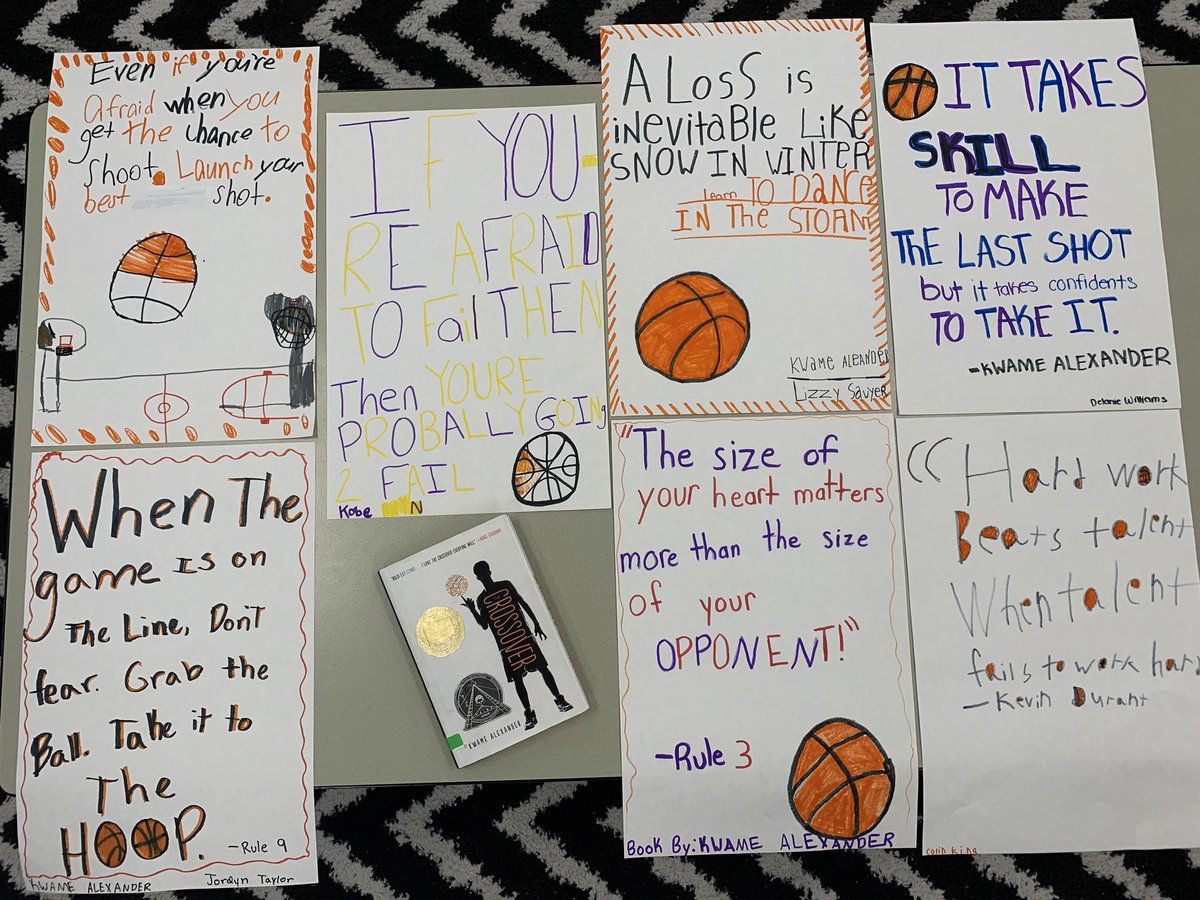 Even if you're
Afraid when you
get the chance to
shoot. Launch your
best shot.
I F YOU-
RE AFRAID
TO Fail THEN
Then YOURE
PROBALLY GOING
2 FAIL
Kobe
N
A LosS is
iNEVITABLE LikE
SNOW IN WINTER
learn TO DANCE
IN THE STOAM
KWAME ALEANDER
Lizzy Sawyer
IT TAKES
SKILL
TO MAKE
THE LAST SHOT
but it takes confidents
TO TAKE IT.
-KWAME ALEXANDER
Delanie Williams
When The
game is on
The Line, Don't
fear. Grab the
Ball. Take it to
The
HOOP.
-Rule 9
KWAME ALEXANDER
Jordyn Taylor
THE
CROSSOVER
KWAME ALEXANDER
"The size of
your heart matters
more than the size
of your
OPPONENT!"
-Rule 3
Book By: KWAME ALEXANDER
"Hard work
Beats talent
When talent
fails to work hard
- Kevin Durant
colin king